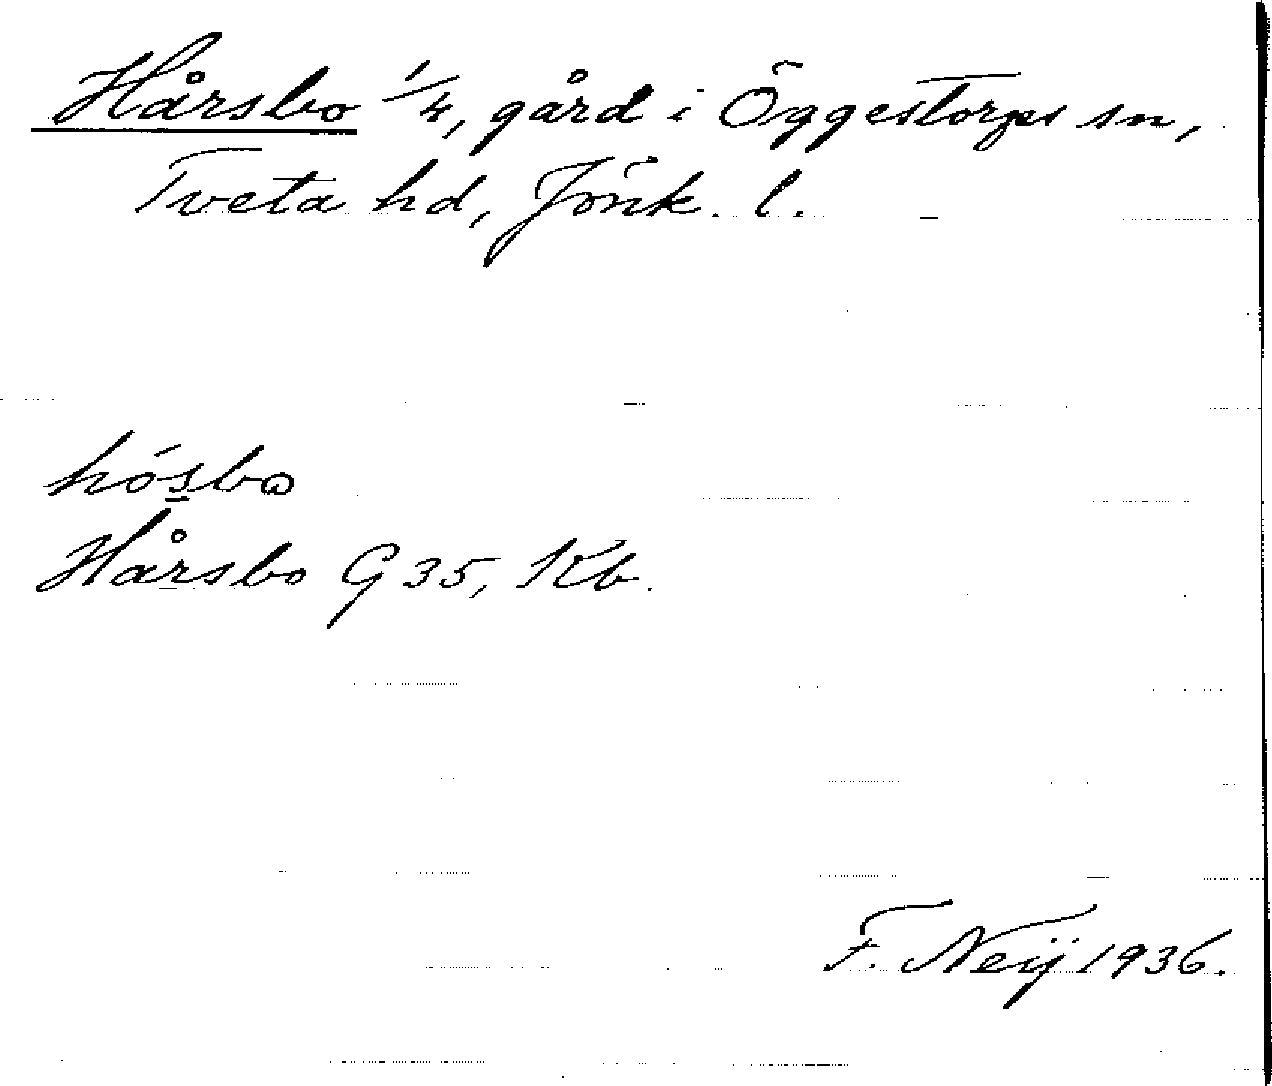 Hårsbo 1/4, gård i Öggestorps sn,
Tveta hd, Jönk. l.
hósbo
Hårsbo G 35, Kb.
F. Neij 1936.